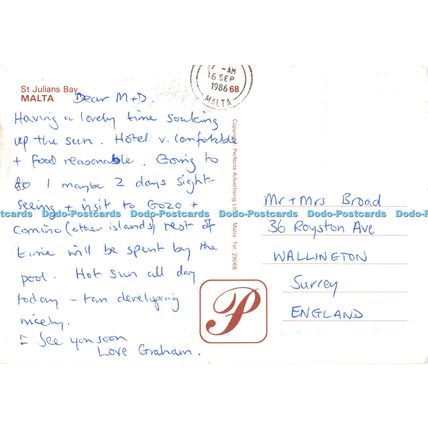 St Julians Bay
MALTA
Dear M+D.
Having a lovely time soaking
up the sun. Hotel v. comfortable
+ food reasonable. Going to
do 1 maybe 2 days sight-
seeing + visit to Gozo +
comino (other islands) rest of
time will be spent by the
pool. Hot sun all day
today - tan developing
nicely.
See you soon
Love Graham.
AM
16 SEP
1986 68
MALTA
Copyright Perfecta Advertising Ltd. Malta Tel: 29068
Mr + Mrs Broad
36 Royston Ave
WALLINGTON
Surrey
ENGLAND
P
Dodo-Postcards Dodo-Postcards Dodo-Postcards Dodo-Postcards